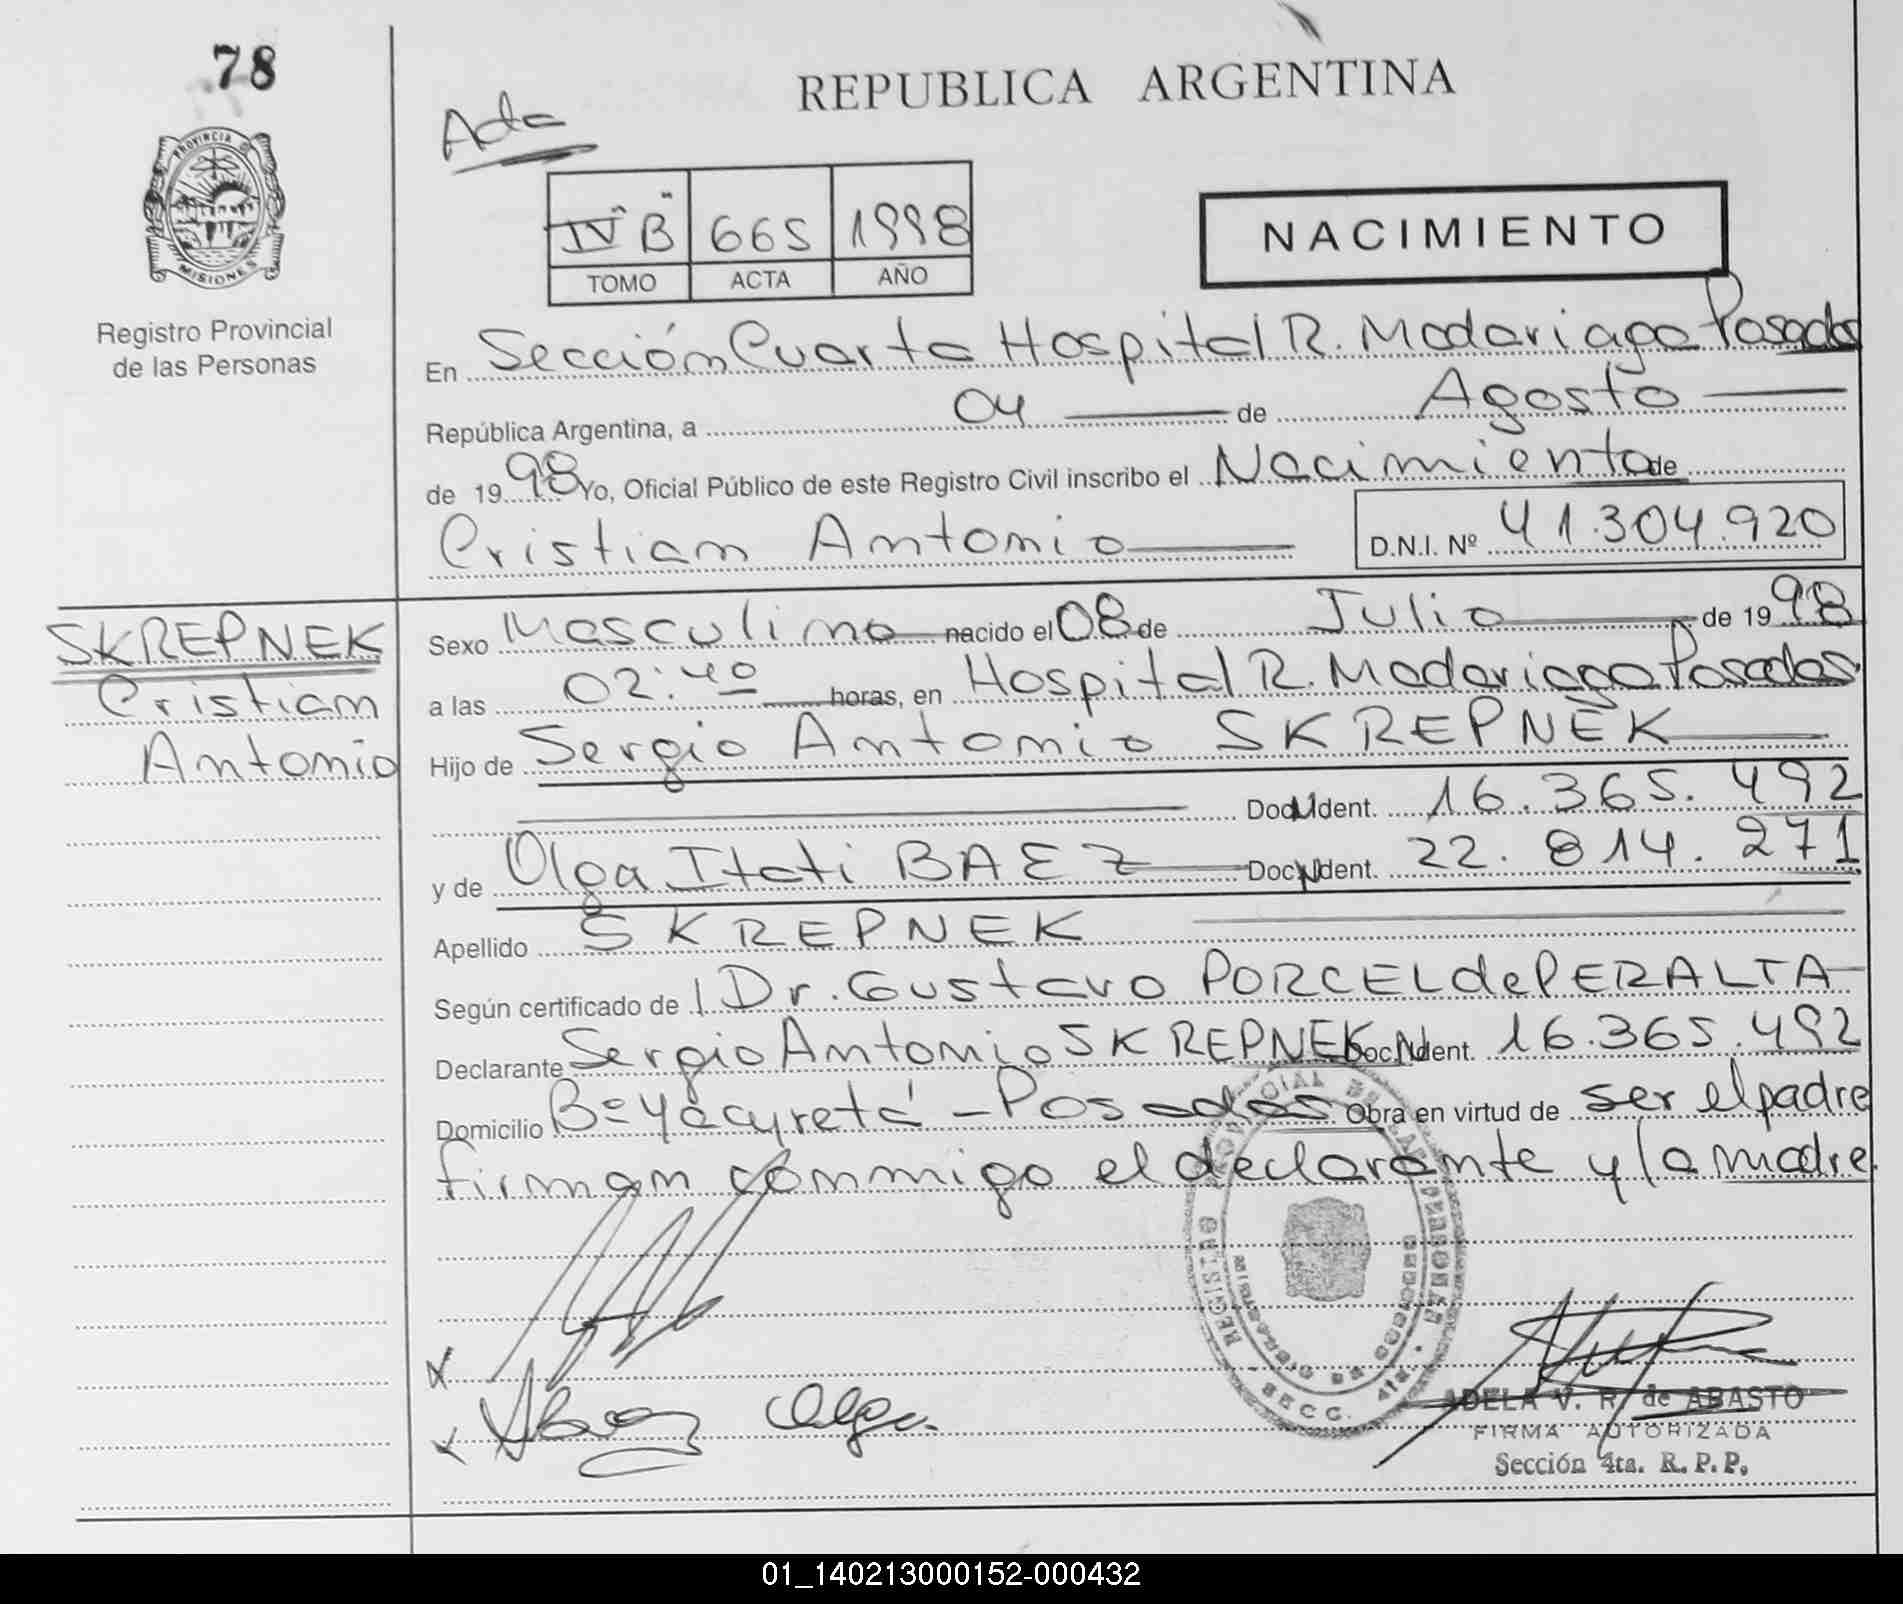 78
REPUBLICA ARGENTINA
Acta
PROVINCIA D
MISIONES
IV "B" 665 1998
TOMO ACTA AÑO
NACIMIENTO
Registro Provincial
de las Personas
En Sección Cuarta Hospital R. Madariaga Posadas
República Argentina, a 04 de Agosto
de 1998 Yo, Oficial Público de este Registro Civil inscribo el Nacimiento de
Cristian Antonio D.N.I. Nº 41.304.920
SKREPNEK
Cristian
Antonio
Sexo Masculino nacido el 08 de Julio de 1998
a las 02:40 horas, en Hospital R. Madariaga Posadas
Hijo de Sergio Antonio SKREPNEK
Doc. Ident. 16.365.492
y de Olga Itati BAEZ Doc. Ident. 22.814.271
Apellido SKREPNEK
Según certificado de Dr. Gustavo PORCEL de PERALTA
Declarante Sergio Antonio SKREPNEK Doc. Ident. 16.365.492
Domicilio Bº Yacyretá - Posadas Obra en virtud de ser el padre
firman conmigo el declarante y la madre
Olga
SECC. 4ta.
ADELA V. R. de ABASTO
FIRMA AUTORIZADA
Sección 4ta. R. P. P.
01_140213000152-000432